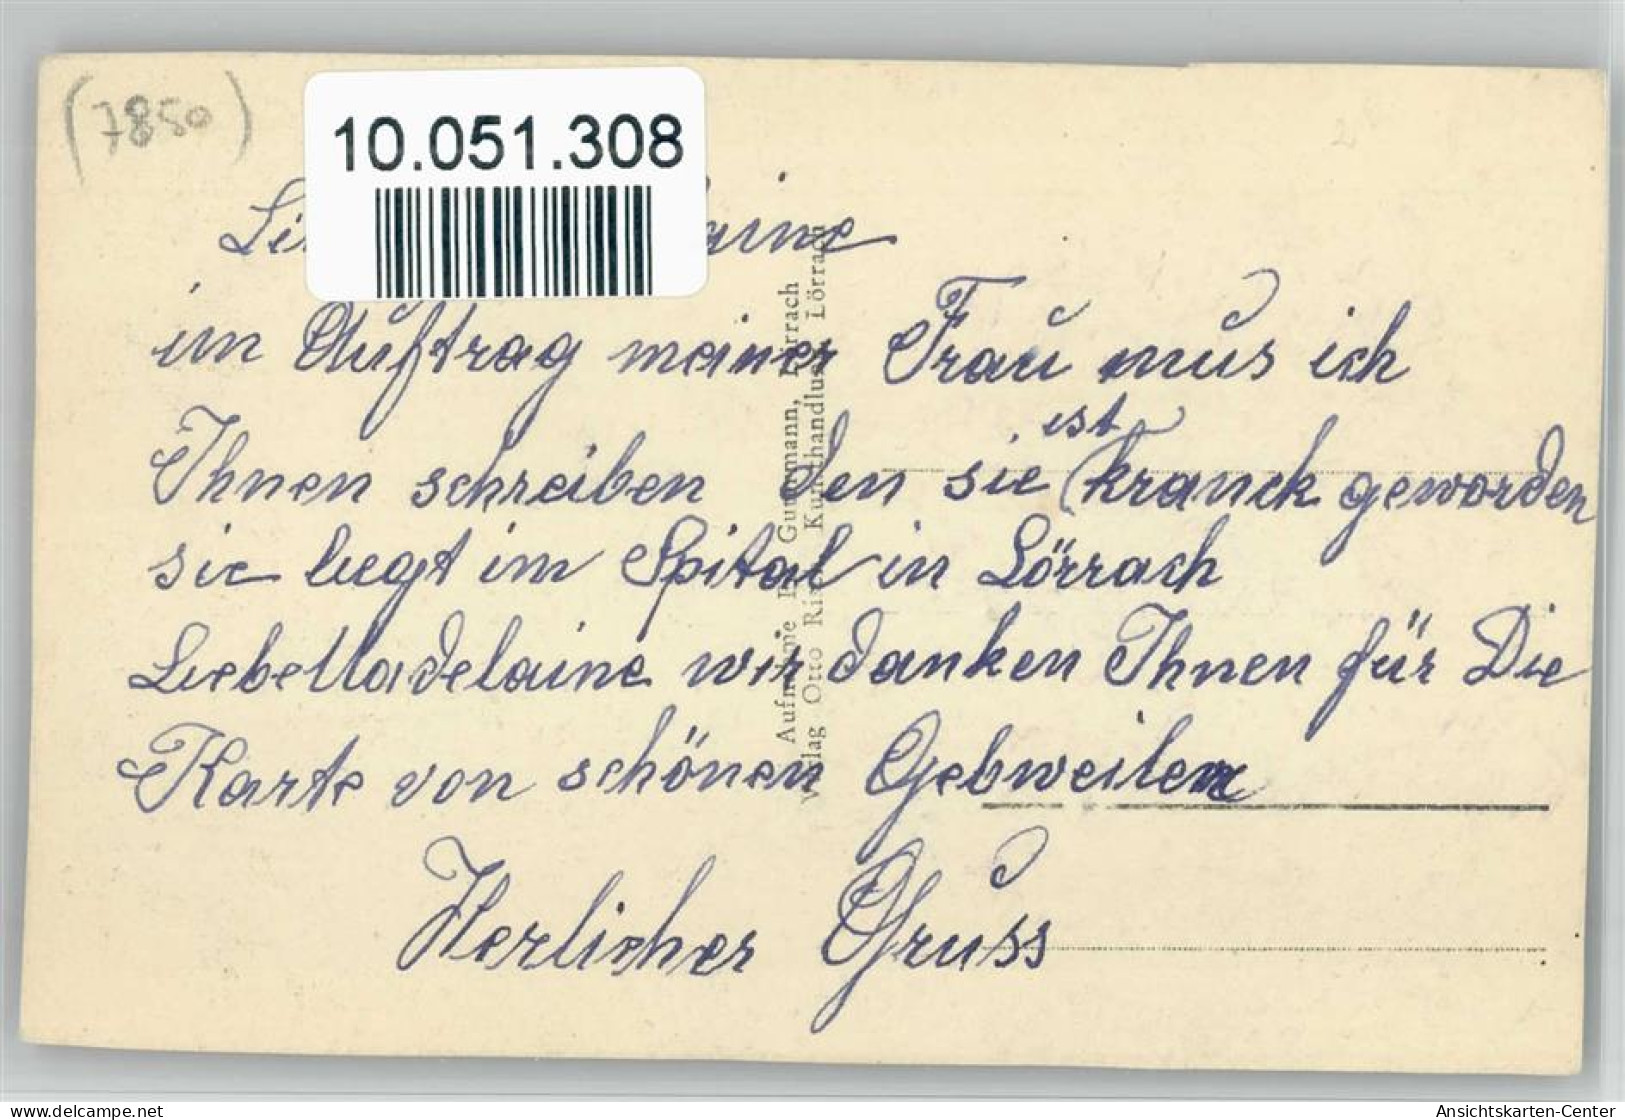 (7850)
10.051.308
im Auftrag meiner Frau mus ich
ist
Ihnen schreiben den sie kranck geworden
sie liegt im Spital in Lörrach
Liebe Madelaine wir danken Ihnen für Die
Karte von schönen Gebweiler
Herlicher Gruss
Aufnahme Guttmann, Lörrach
Verlag Otto Kunsthandlung Lörrach
delcampe.net
Ansichtskarten-Center